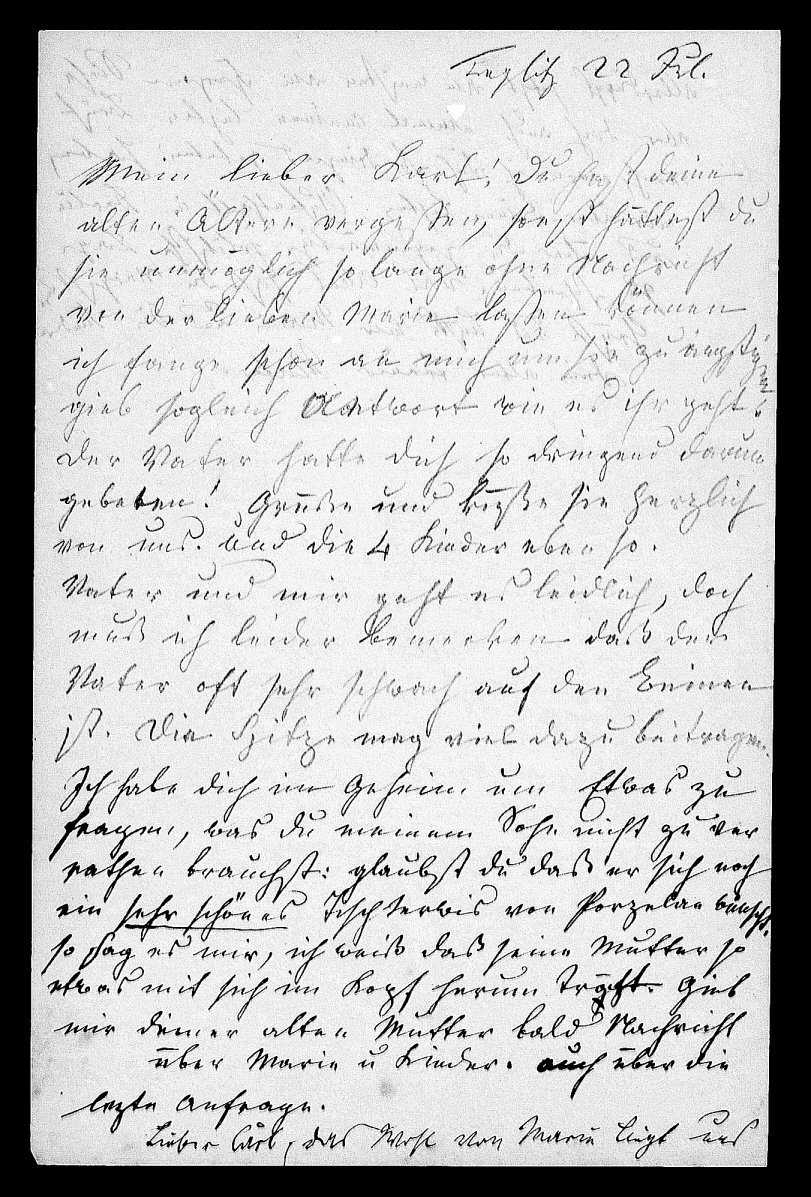 Teplitz 22 Jul.
Mein lieber Karl! Du hast deine
alten Ältern vergeßen, sonst hättest du
sie unmöglich so lange ohne Nachricht
von der lieben Marie laßen können
ich fange schon an mich um sie zu ängstigen
gieb sogleich Antwort wie es ihr geht
der Vater hatte dich so dringend darum
gebeten! Grüße und küße sie herzlich
von uns. Und die 4 Kinder eben so.
Vater und mir geht es leidlich, doch
muß ich leider bemerken daß der
Vater oft sehr schwach auf den Beinen
ist. Die Hitze mag viel dazu beitragen.
Ich habe dich im Geheim um Etwas zu
fragen, was du meinem Sohn nicht zu ver
rathen brauchst: glaubst du daß er sich noch
ein sehr schönes Tischservis von Porzelan wünscht.
so sag es mir, ich weiß daß seine Mutter so
etwas mit sich im Kopf herum trägt. Gieb
mir deiner alten Mutter bald Nachricht
über Marie u Kinder. auch über die
lezte Anfrage.
Lieber Carl, das Wohl von Marie liegt uns